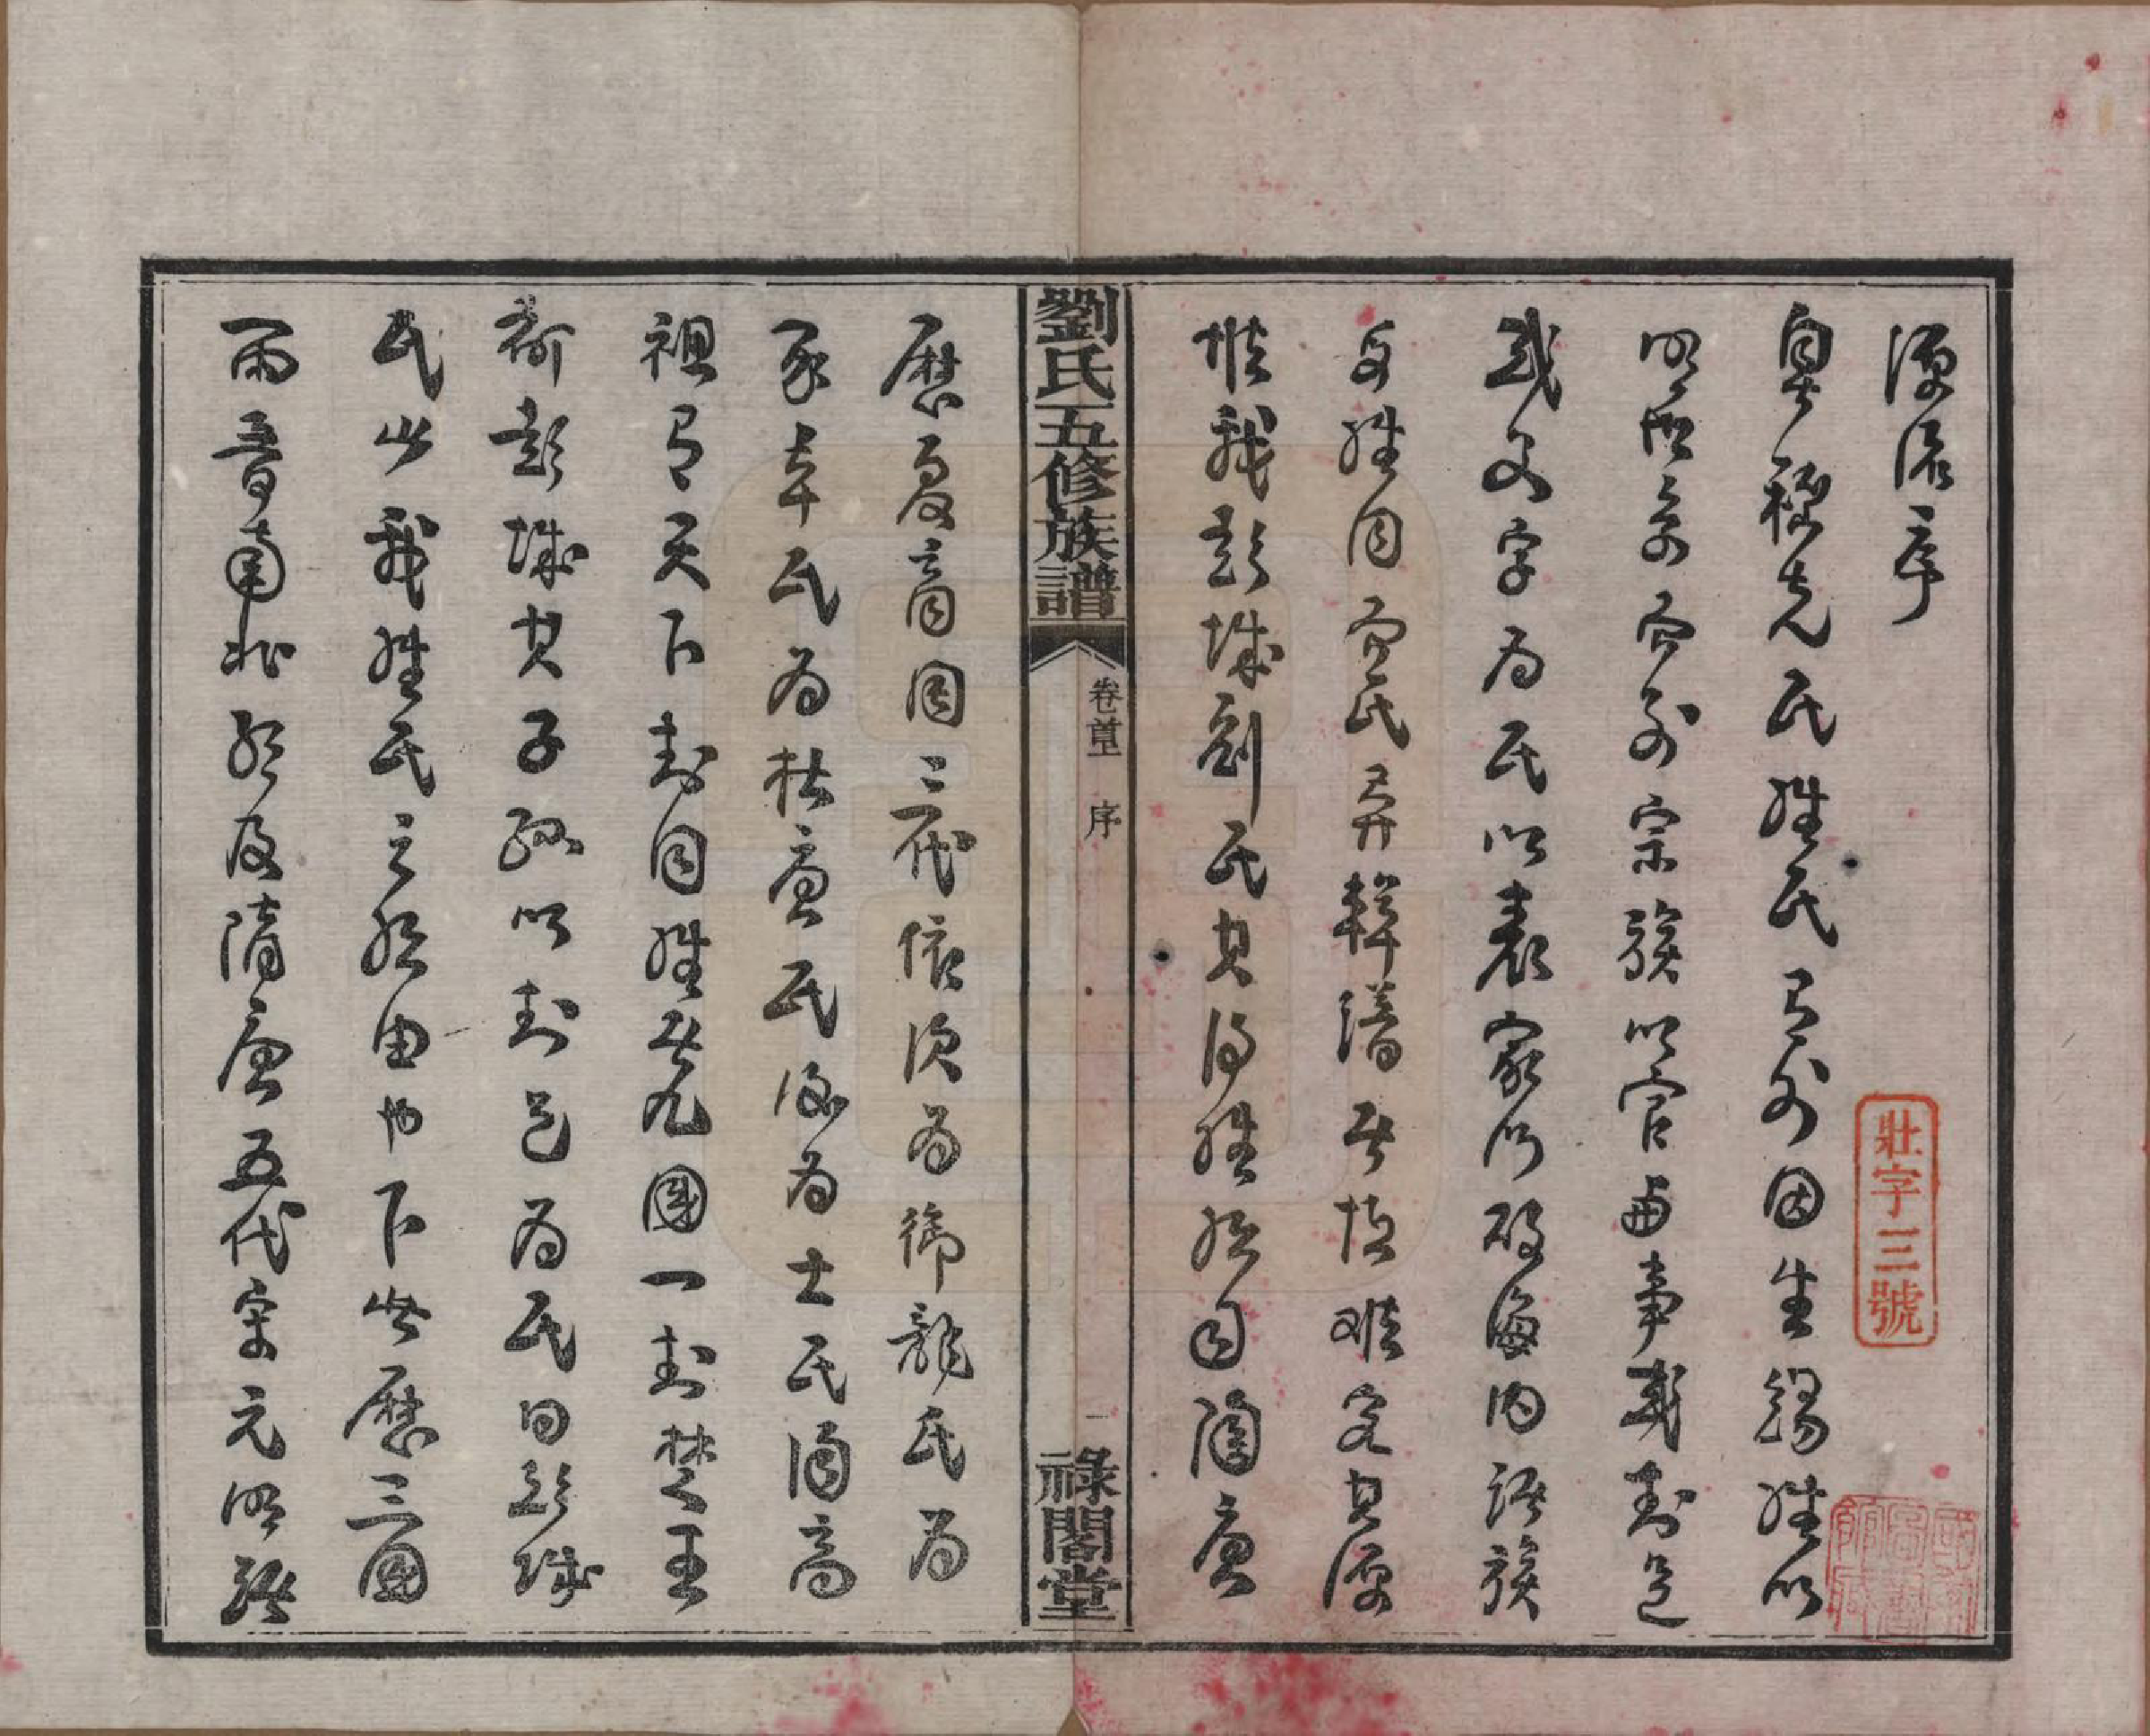 源流序
粤稽先民姓氏有別因生錫姓以
明世系而別宗族以官與事或封邑
或父字為氏以表家門故海內諸族
姓同而氏異難究其源
惟我彭城劉氏其得姓始自陶唐
劉氏五修族譜
卷首 序 一
祿閣堂
歷夏商周三代依次為御龍氏為
豕韋氏為杜唐氏後為士氏漢高
祖有天下封同姓者九國一封楚王
於彭城其子孫以封邑為氏曰彭城
氏此我姓氏之始由也下此歷三國
兩晉南北朝及隋唐五代宋元明諸
壯字三號